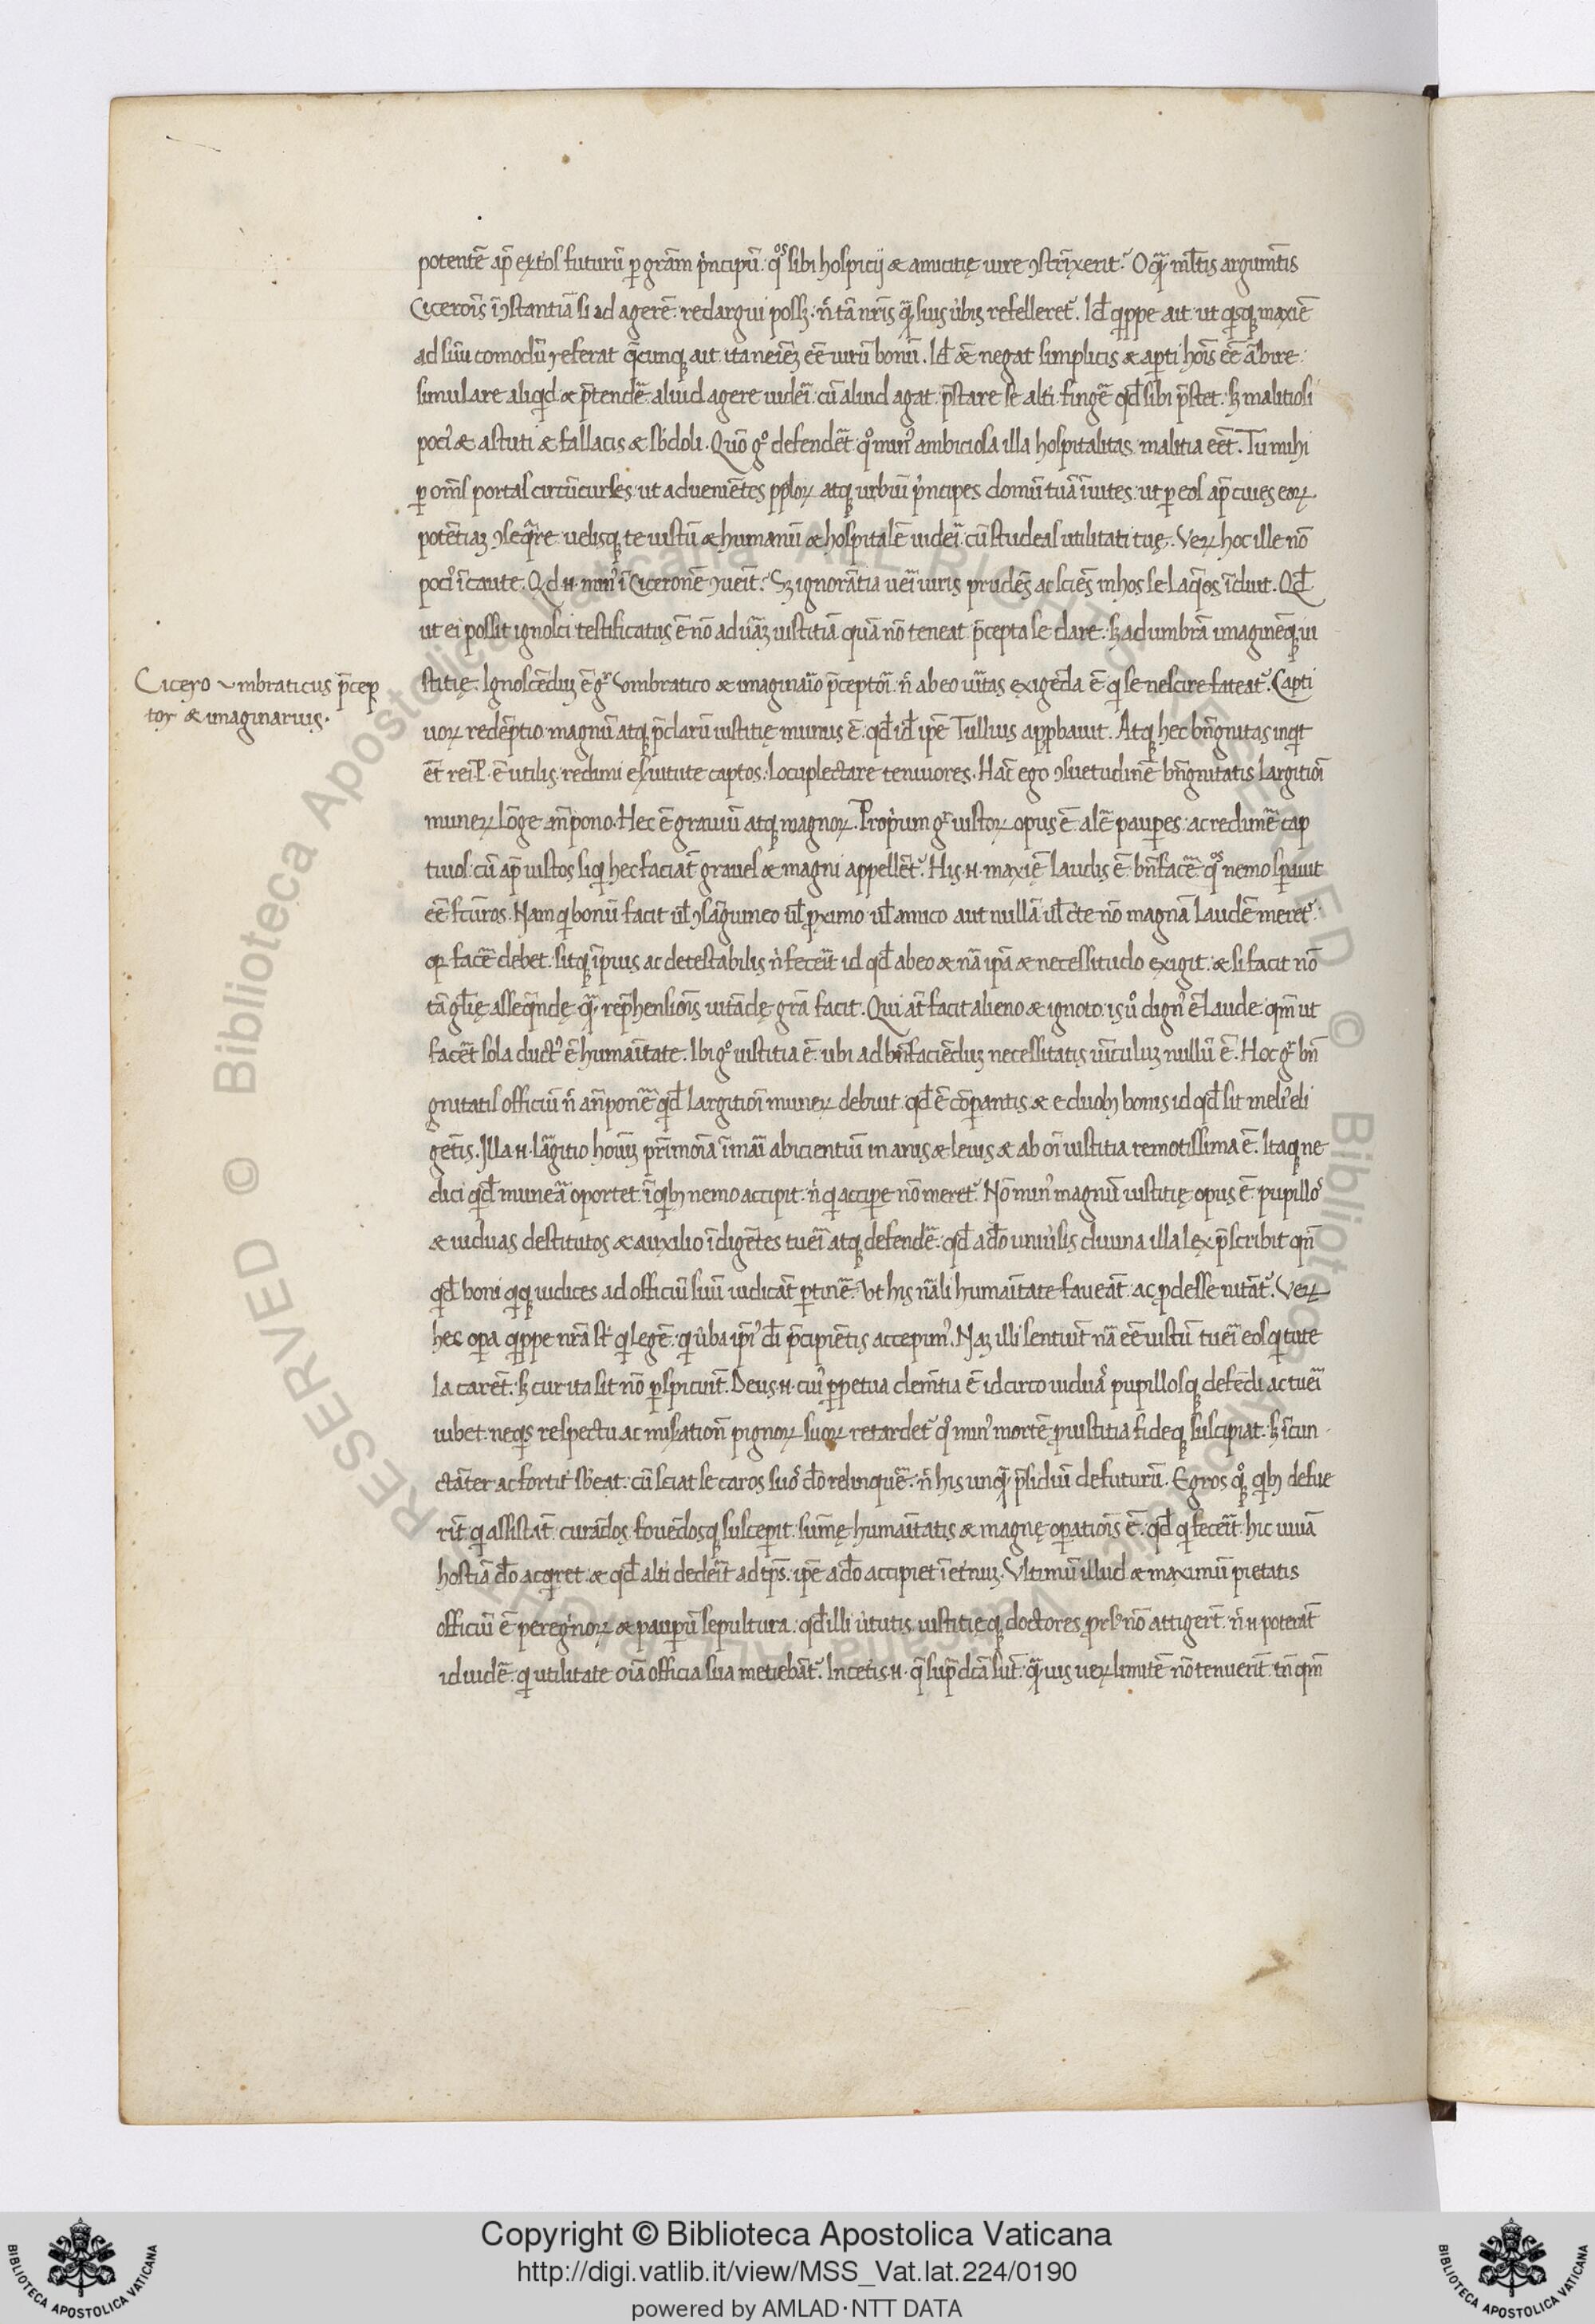 potentē ap̄ ext̓os futurū ꝑ grām p̓ncipū. q̊s sibi hospicij & amicitię iure ꝯstrīxerit? O quā ml̄tis argum̄tis
Cicerōis īꝯstantiā si ad agerē. redargui possꝫ. n̄ tā nr̄is quā suis ũbis refelleret̃. Id̄ q̓ppe ait ut q̓sqꝫ maxīe
ad suū comodū referat q̄cunqꝫ ait ita neīeꝫ eē uirū bonū. Id̄ & negat simplicis & aꝑti hoīs eē ābire.
simulare aliq̓d & p̄tendē. aliud agere uidēi. cū aliud agat. p̄stare se alt̓i. fingē qd̄ sibi p̄stet. sꝫ malitiosi
poci᷒ & astuti & fallacis & sb̓doli. Quō g̊ defendēt q̊ min᷒ ambiciosa illa hospitalitas malitia eēt. Tu mihi
ꝑ om̄s portas circūcurses. ut aduenīetes pplōꝝ atqꝫ urbiū p̓ncipes domū tuā īuites. ut ꝑ eos ap̄ ciues eoꝝ
potētiaꝫ ꝯseq̄re. uelisqꝫ te iustū & humanū & hospitalē uidēi. cū studeas utilitati tuę. Veꝝ hoc ille nō
poci᷒ īcaute. Qd n̄. min᷒ ī Ciceronē ꝯueīt? Sꝫ ignorātia uēi iuris prudēs ac sciēs in hos se laq̄os īduit. Qd̄
ut ei possit ignosci testificatus ē nō ad uāꝫ iustitiā quā nō teneat p̄cepta se dare. sꝫ ad umbrā imaginēqꝫ iu
stitię. Ignoscēduꝫ ē g̊ Vmbratico & imaginaīo p̄ceptōi. n̄ ab eo ūitas exigēda ē q̓ se nescire fateat̃. Capti
Cicero Vmbraticus p̄cep
tor & imaginarius.
uoꝝ redēptio magnū atqꝫ p̄clarū iustitię munus ē. qd̄ id̄ ip̄e Tullius app̄bauit. Atqꝫ hec bn̄gnitas inq̓t
ēt rei P. ē utilis. redimi e suitute captos. Locuplectare tenuiores. Hāc ego ꝯsuetudinē bn̄gnitatis largitiōi
muneꝝ lōge an̄pono. Hec ē grauiū atqꝫ magnoꝝ. Prop̓um g̊ iustoꝝ opus ē. alē pauꝑes. ac redimē cap
tiuos. cū ap̄ iustos siq̓ hec faciāt graues & magni appellēt̃. His n̄. maxīe laudis ē bn̄facē. q̊s nemo sꝑauit
eē fcūros. Nam q̓ bonū facit ul̄ ꝯsāguineo ul̄ ꝓximo ul̄ amico aut nullā ul̄ c̓te nō magnā laudē meret̃.
qꝛ facē debet. sitqꝫ īpius ac detestabilis n̓ fecēit id qd̄ ab eo & nā ip̄a & necessitudo exigit. & si facit nō
tā gl̄ię asseq̄ndę quā rep̄hensiōis uitādę grā facit. Qui āt facit alieno & ignoto. is ů dign᷒ ē laude. qm̄ ut
facēt sola duct᷒ ē humaītate. Ibi g̊ iustitia ē. ubi ad bn̄faciēduꝫ necessitatis ūiculuꝫ nullū ē. Hoc g̊ bn̄
gnitatis officiū n̄ an̄ponē qd̄ largitiōi muneꝝ debuit. qd̄ ē cōꝑantis & e duobꝫ bonis id qd̄ sit meli᷒ eli
gētis. Illa n̄. lāgitio hoīuꝫ pr̄imōia īmāi abicientiū inanis & leuis & ab oī iustitia remotissima ē. Itaqꝫ ne
dici qd̄ munēa oportet. ī qbꝫ nemo accipit. n̓ q̓ acciꝑe nō meret̃. Nō min᷒ magnū iustitię opus ē pupillos
& uiduas destitutos & auxilio īdigētes tuēi atqꝫ defendē. qd̄ a dō uniu̓lis diuina illa lex p̄scribit qm̄
qd̄ boni q̓qꝫ iudices ad officiū suū iudicāt ꝑtinē. Vt his nāli humaītate faueāt. ac ꝓdesse nitāt̃. Veꝝ
hec oꝑa q̓ppe nr̄a st̄ q̓ legē. q̓ ũba ip̄i᷒ dī p̄cipiētis accepim᷒. Naꝫ illi sentiūt nā eē iustū tuēi eos q̓ tute
la carēt. sꝫ cur ita sit nō ꝑspiciūt. Deus n̄. cui᷒ ꝑpetua clemētia ē idcirco uiduas pupillosqꝫ defēdi ac tuēi
iubet. neq̓s respectu ac mis̓ation̄ pignoꝝ suoꝝ retardet̃ q̊ min᷒ mortē ꝓ iustitia fideqꝫ suscipiat. sꝫ īcun
ctāter ac fortit̓ sb̓eat. cū sciat se caros suos dō relinquē. n̄ his unquā p̄sidiū defuturū. Egros q̊qꝫ qbꝫ defue
rīt q̓ assistāt. curādos fouēdosqꝫ susceꝑit. sum̄ę humaītatis & magnę oꝑatiōis ē. qd̄ q̓ fecēit. hic uiuā
hostiā dō acq̓ret. & qd̄ alt̓i dedēit ad tp̄s. ip̄e a dō accipiet ī et̓nuꝫ. Vltimū illud & maximū pietatis
officiū ē peregrinoꝝ & pauꝑū sepultura. qd̄ illi ůtutis iustitięqꝫ doctores prs̓ nō attigert̄. n̄ n̄ poterāt
id uidē. q̓ utilitate oīa officia sua metiebāt̃. In cet̓is n̄. q̄ sup̄ dc̄a sūt. quāuis ueꝝ limitē nō tenuerīt. tn̄ qm̄
Copyright © Biblioteca Apostolica Vaticana
http://digi.vatlib.it/view/MSS_Vat.lat.224/0190
powered by AMLAD·NTT DATA